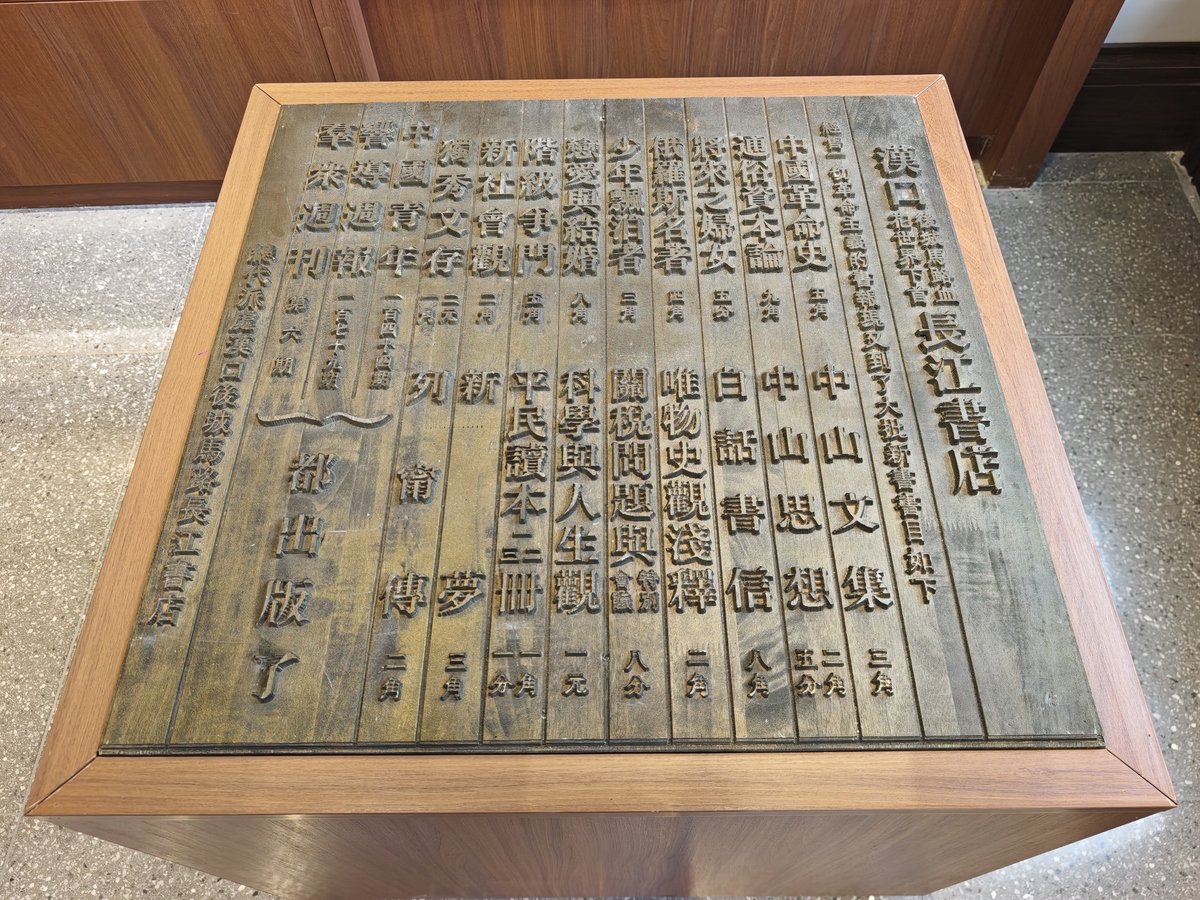 漢口 後城馬路 長江書店
經售一切革命主義的書報現又到了大批新書書目如下
中國革命史 五角 中山文集 三角
通俗資本論 九角 中山思想 二角五分
將來之婦女 五分 白話書信 八角
俄羅斯名著 四角 唯物史觀淺釋 二角
少年飄泊者 三角 關稅問題與特別會議 八分
戀愛與結婚 八角 科學與人生觀 一元
階級爭鬥 五角 平民讀本 冊 一角一分
新社會觀 二角 新夢 三角
獨秀文存 二元一角 列甯傳 二角
中國青年 一百四十四期
嚮導週報 一百七十九期
羣衆週刊 第六期
都出版了
總代派處漢口後城馬路長江書店